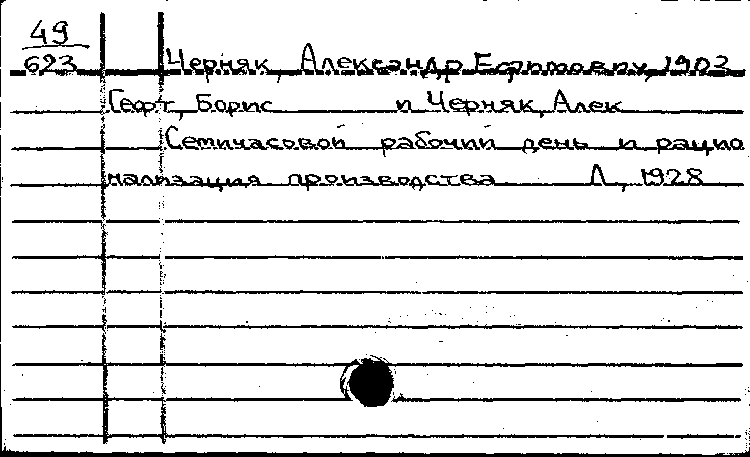 49
623 Черняк, Александр Ефимович, 1902
Гефт, Борис и Черняк, Алек
Семичасовой рабочий день и рацио
нализация производства Л., 1928